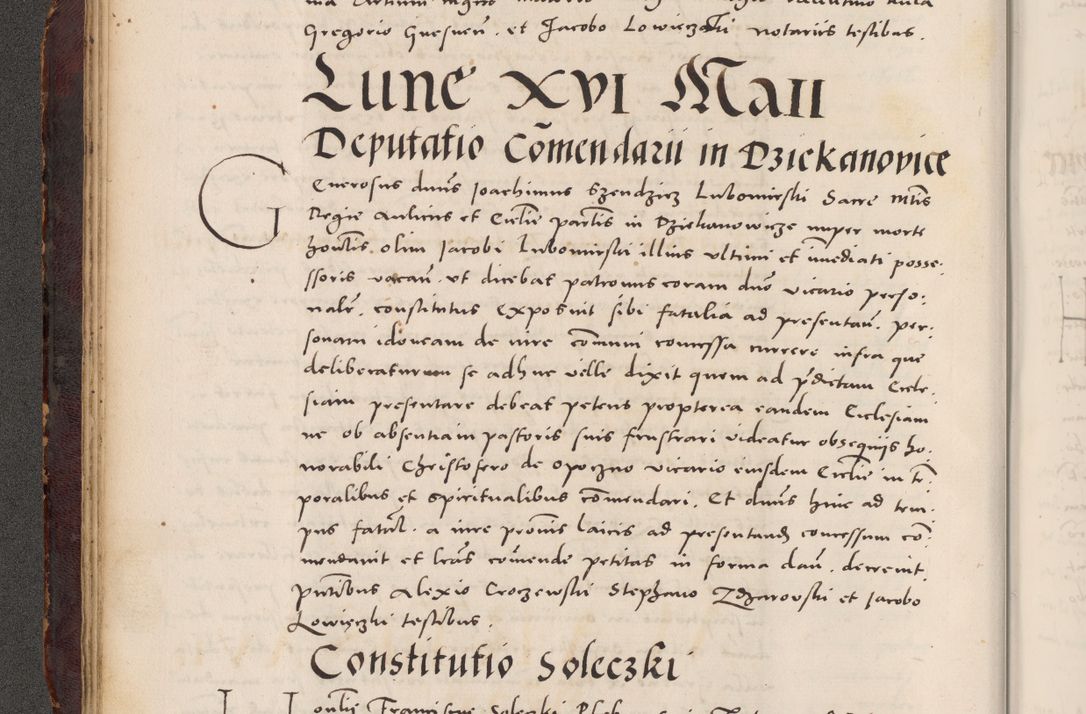 Gregorio Gnesnen̄. et Jacobo Lowieczski notariis testibus.
Lune XVI Maii
Deputatio Com̄endarii in Dziekanovice
Generosus dn̄us Joachimus Szendzicz Lubomirski Sacre Mtīs
Regie Aulicus et Ecclīe partīs in Dziekanowicze nuper morte
hon̄tis. olim Jacobi Lubomirski illius ultimi et im̄ediati posse:
ssoris vacan̄. ut dicebat patronus coram dn̄o vicario perso:
nalr̄. constitutus exposuit sibi fatalia ad presentan̄. per:
sonam idoneam de iure com̄uni concessa currere infra que
deliberaturum se adhuc velle dixit quem ad p̄dictam Eccle:
siam presentare debeat petens propterea eandem Ecclesiam
ne ob absentiam pastoris suis frustrari videatur obsequiis ho:
norabili Christofero de Opoczno vicario eiusdem Ecclīe in tē:
poralibus et spiritualibus com̄endari. Et dn̄us hinc ad tem:
pus fatal̄. a iure pron̄is laicis ad presentand̄ concessum cō:
mendavit et lrās com̄ende petitas in forma dan̄. decrevit.
pn̄tibus Alexio Croczewski Stephano Zdzarovski et Jacobo
Lowięczki testibus.
Constitutio Soleczki
Franciscus Soleczki